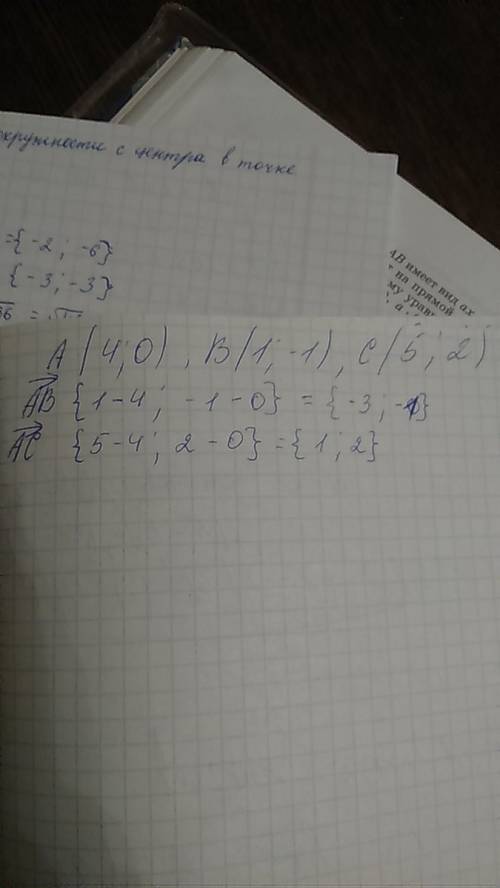 окружности с центра в точке
={-2; -6}
{-3; -3}
AB имеет вид ах
на прямой
A(4;0), B(1;-1), C(5;2)
AB {1-4; -1-0} = {-3; -1}
AC {5-4; 2-0}={1;2}